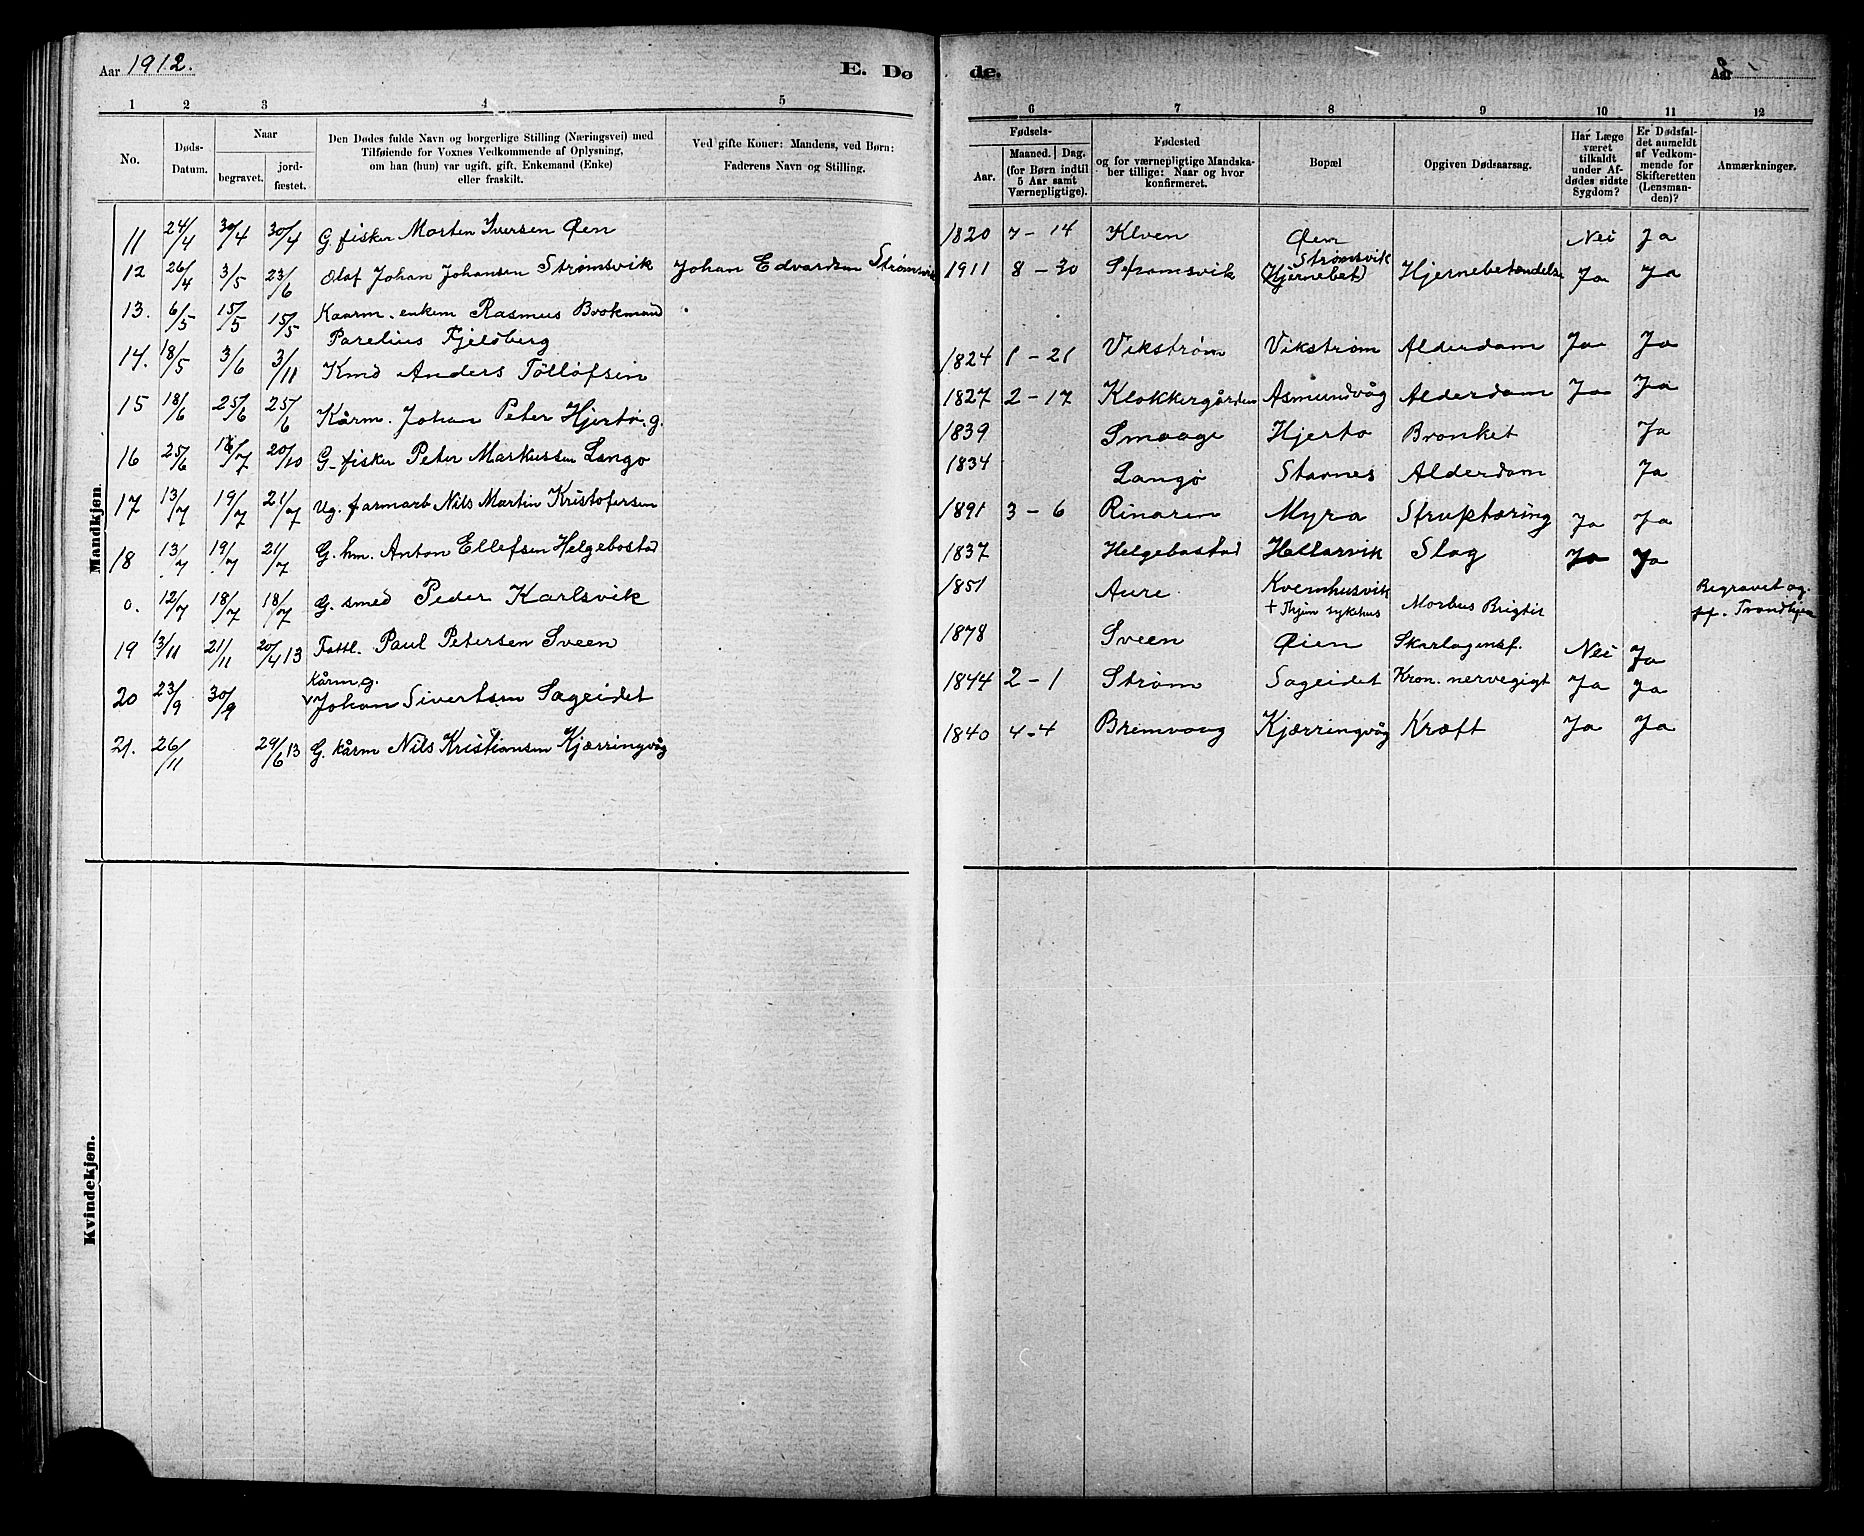 Aar 1912.
E. Dø
1 2 3 4 5
No.
Døds-Datum.
Naar
begravet.
jord-fæstet.
Den Dødes fulde Navn og borgerlige Stilling (Næringsvei) med
Tilføiende for Voxnes Vedkommende af Oplysning,
om han (hun) var ugift, gift, Enkemand (Enke)
eller fraskilt.
Ved gifte Koner: Mandens, ved Børn:
Faderens Navn og Stilling.
Mandkjøn.
11 24/4 30/4 30/4 G. fisker Morten Iversen Øen
12 26/4 3/5 23/6 Olaf Johan Johansen Strømsvik Johan Edvardsen Strømsvik
13. 6/5 15/5 15/5 Kaarm. enkem Rasmus Brokmand
Parelius Fjeldberg
14. 18/5 3/6 3/11 Kmd Anders Tøllofsen
15 18/6 25/6 25/6 Kårm. Johan Peter Hjertø. g.
16 25/6 16/7 20/10 G. fisker Peter Markussen Langø
17 13/7 19/7 21/7 Ug. farmarb Nils Martin Kristofersen
18 13/7 19/7 21/7 G. hm. Anton Ellefsen Helgebostad
0. 12/7 18/7 18/7 G. smed Peder Karlsvik
19 3/11 21/11 20/4 13 Fattl. Paul Petersen Sveen
Kårm, g.
20 23/9 30/9 Johan Sivertsen Sageidet
21. 26/11 29/6 13 G. kårm Nils Kristiansen Kjærringvåg
Kvindekjøn.
de.
Aar
6 7 8 9 10 11 12
Fødsels-
Aar.
Maaned. Dag.
(for Børn indtil
5 Aar samt
Værnepligtige).
Fødested
og for værnepligtige Mandska-
ber tillige: Naar og hvor
konfirmeret.
Bopæl
Opgiven Dødsaarsag.
Har Læge
været
tilkaldt
under Af-
dødes sidste
Sygdom?
Er Dødsfal-
det anmeldt
af Vedkom-
mende for
Skifteretten
(Lensman-
den)?
Anmærkninger.
1820 7 - 14 Klven Øen Nei Ja
Strømsvik
1911 8 - 30 Strømsvik (Hjernebet) Hjernebetændelse Ja Ja
1824 1 - 21 Vikstrøm Vikstrøm Alderdom Ja Ja
1827 2 - 17 Klokkergården Asmundvåg Alderdom Ja Ja
1839 Smaage Hjertø Bronket Ja
1834 Langø Starnes Alderdom Ja
1891 3 - 6 Rinaren Myra Struptæring Ja Ja
1837 Helgebostad Hellarvik Slag Ja Ja
1851 Aure Kvernhusvik
+ Thjem sykehus Morbus Brigtii Begravet og
jf. Trondhjem
1878 Sveen Øien Skarlagensf. Nei Ja
1844 2 - 1 Strøm Sageidet Kron. nervegigt Ja Ja
1840 4-4 Bremvaag Kjærringvåg Kræft Ja Ja